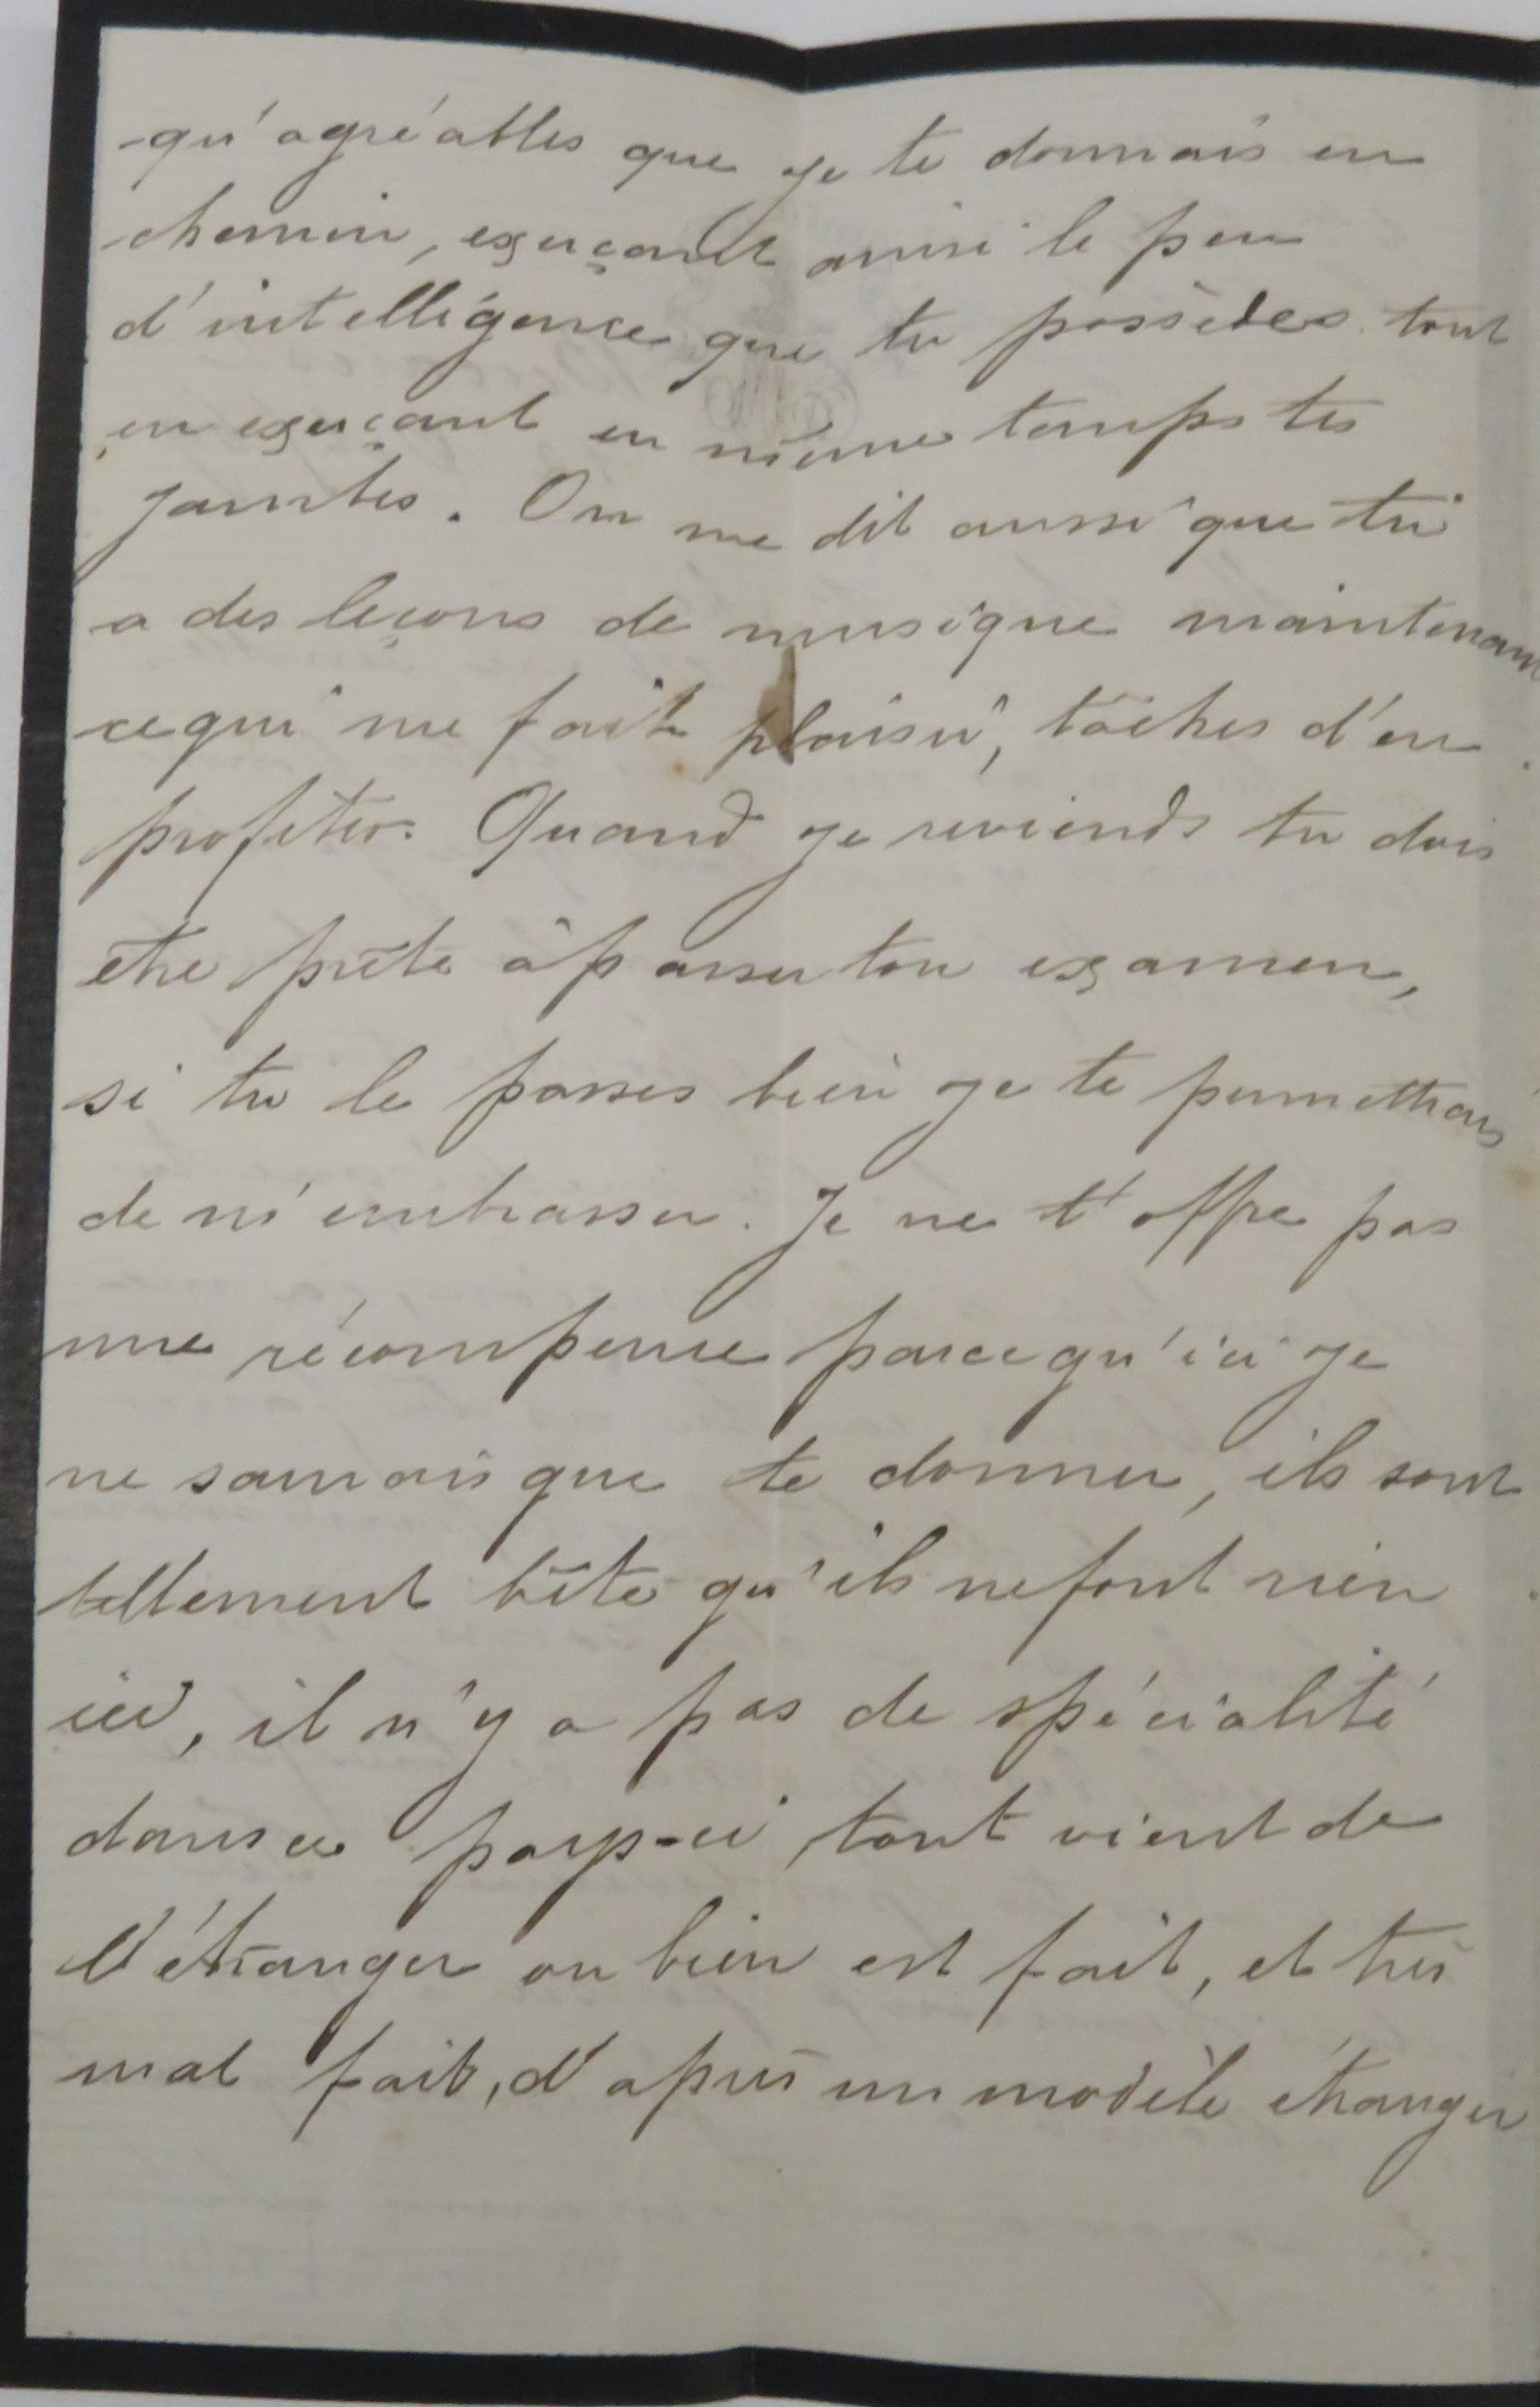 -qu'agréables que je te donnais en
chemin, exerçant ainsi le peu
d'intelligence que tu possèdes tout
en exerçant en même temps tes
jambes. On me dit aussi que tu
a des leçons de musique maintenant
ce qui me fait plaisir, tâches d'en
profiter. Quand je reviends tu dois
être prête à passer ton examen,
si tu le passes bien je te permettrais
de m'embrasser. Je ne t'offre pas
une récompense parcequ'ici je
ne saurais que te donner, ils sont
tellement bête qu'ils ne font rien
ici, il n'y a pas de spécialité
dans ce pays-ci, tout vient de
l'étranger ou bien est fait, et très
mal fait, d'après un modèle étranger